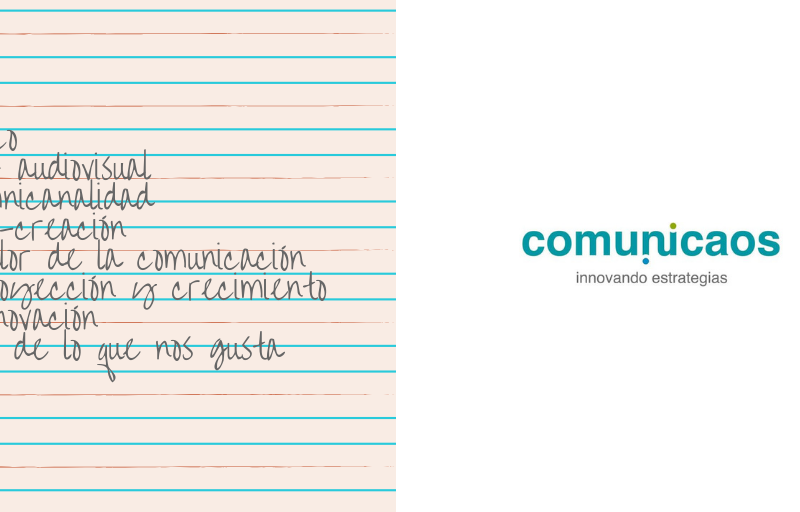 co
audiovisual
nicanalidad
-creación
lor de la comunicación
oyección y crecimiento
novación
de lo que nos gusta
comunicaos
innovando estrategias